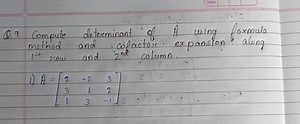 Q.9 Compute determinant of A using formula
method and cofactor expansion along
1st row and 2nd column.
1) A = [ 2 -2 3
3 1 2
1 3 -1 ]